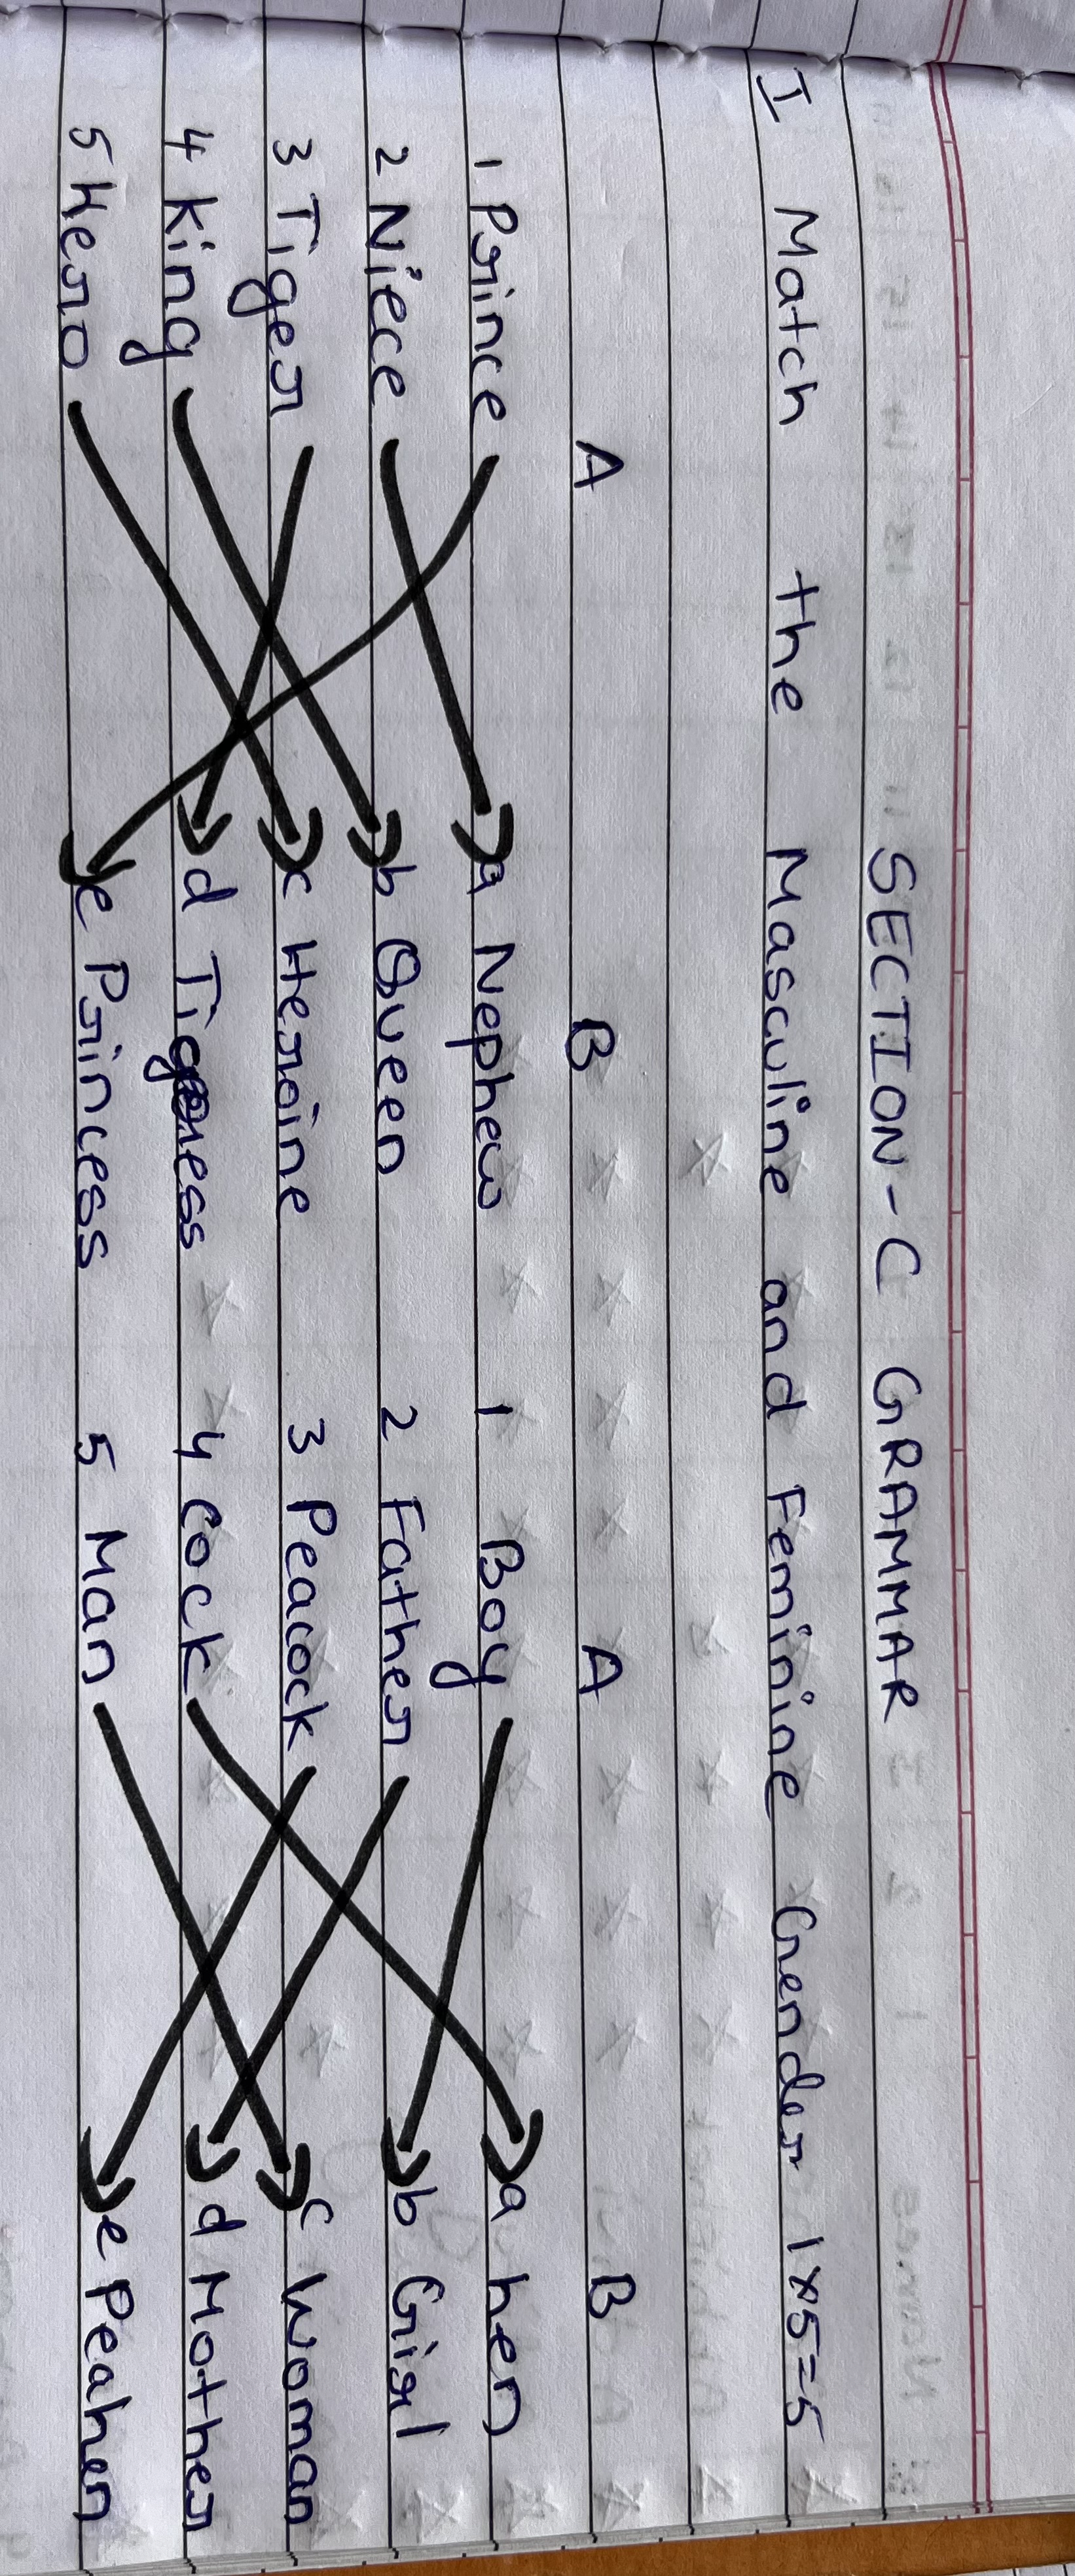 SECTION-C GRAMMAR
I Match the Masculine and Feminine Gender 1x5=5
A B A B
1 Prince a Nephew 1 Boy a hen
2 Niece b Queen 2 Father b Girl
3 Tiger c Heroine 3 Peacock c Woman
4 King d Tigress 4 Cock d Mother
5 Hero e Princess 5 Man e Peahen